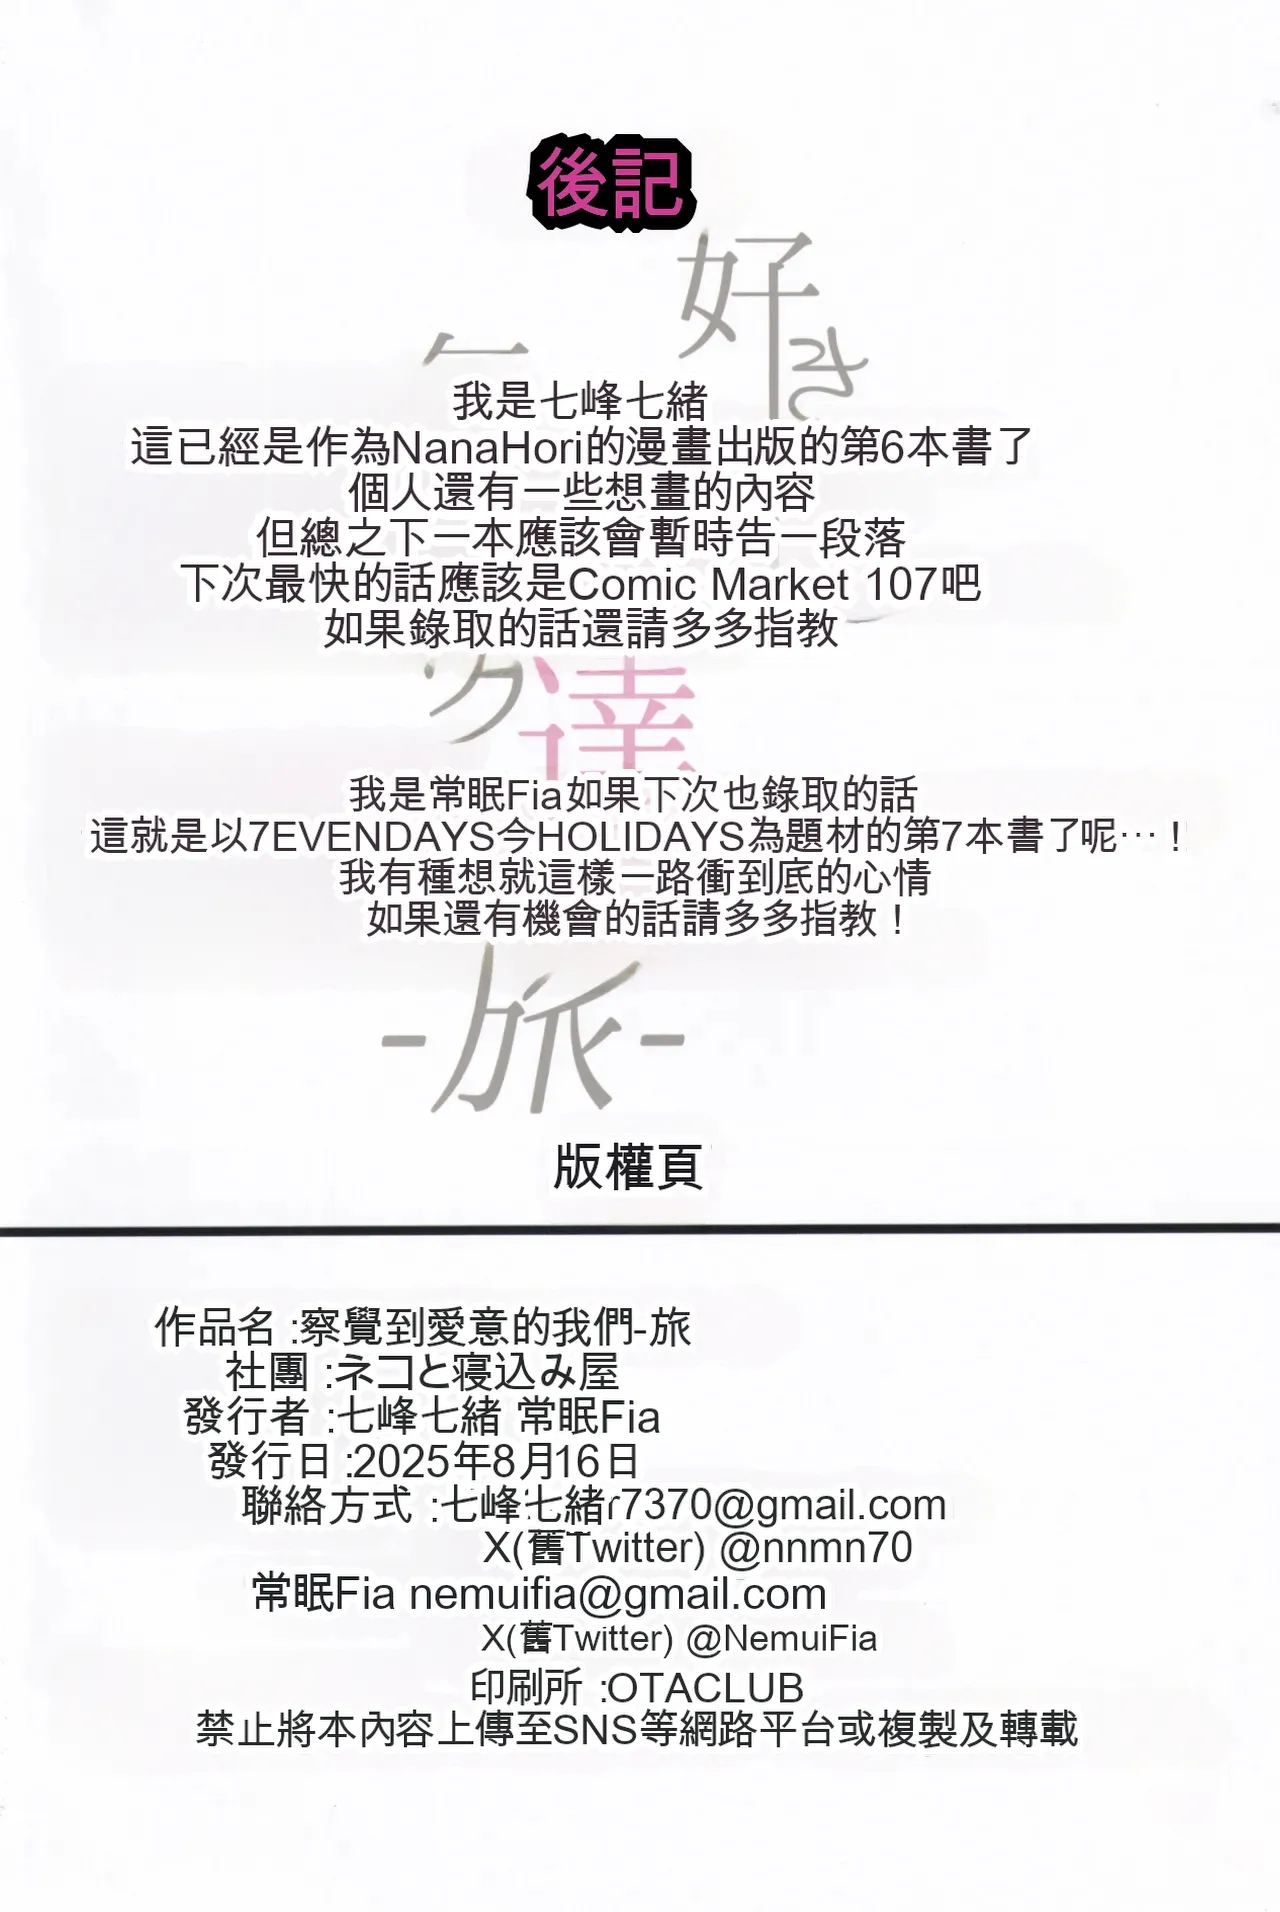 後記
好き
我是七峰七緒
這已經是作為NanaHori的漫畫出版的第6本書了
個人還有一些想畫的內容
但總之下一本應該會暫時告一段落
下次最快的話應該是Comic Market 107吧
如果錄取的話還請多多指教
達
我是常眠Fia如果下次也錄取的話
這就是以7EVENDAYS今HOLIDAYS為題材的第7本書了呢…！
我有種想就這樣一路衝到底的心情
如果還有機會的話請多多指教！
-旅-
版權頁
作品名 :察覺到愛意的我們-旅
社團 :ネコと寝込み屋
發行者 :七峰七緒 常眠Fia
發行日 :2025年8月16日
聯絡方式 :七峰七緒r7370@gmail.com
X(舊Twitter) @nnmn70
常眠Fia nemuifia@gmail.com
X(舊Twitter) @NemuiFia
印刷所 :OTACLUB
禁止將本內容上傳至SNS等網路平台或複製及轉載